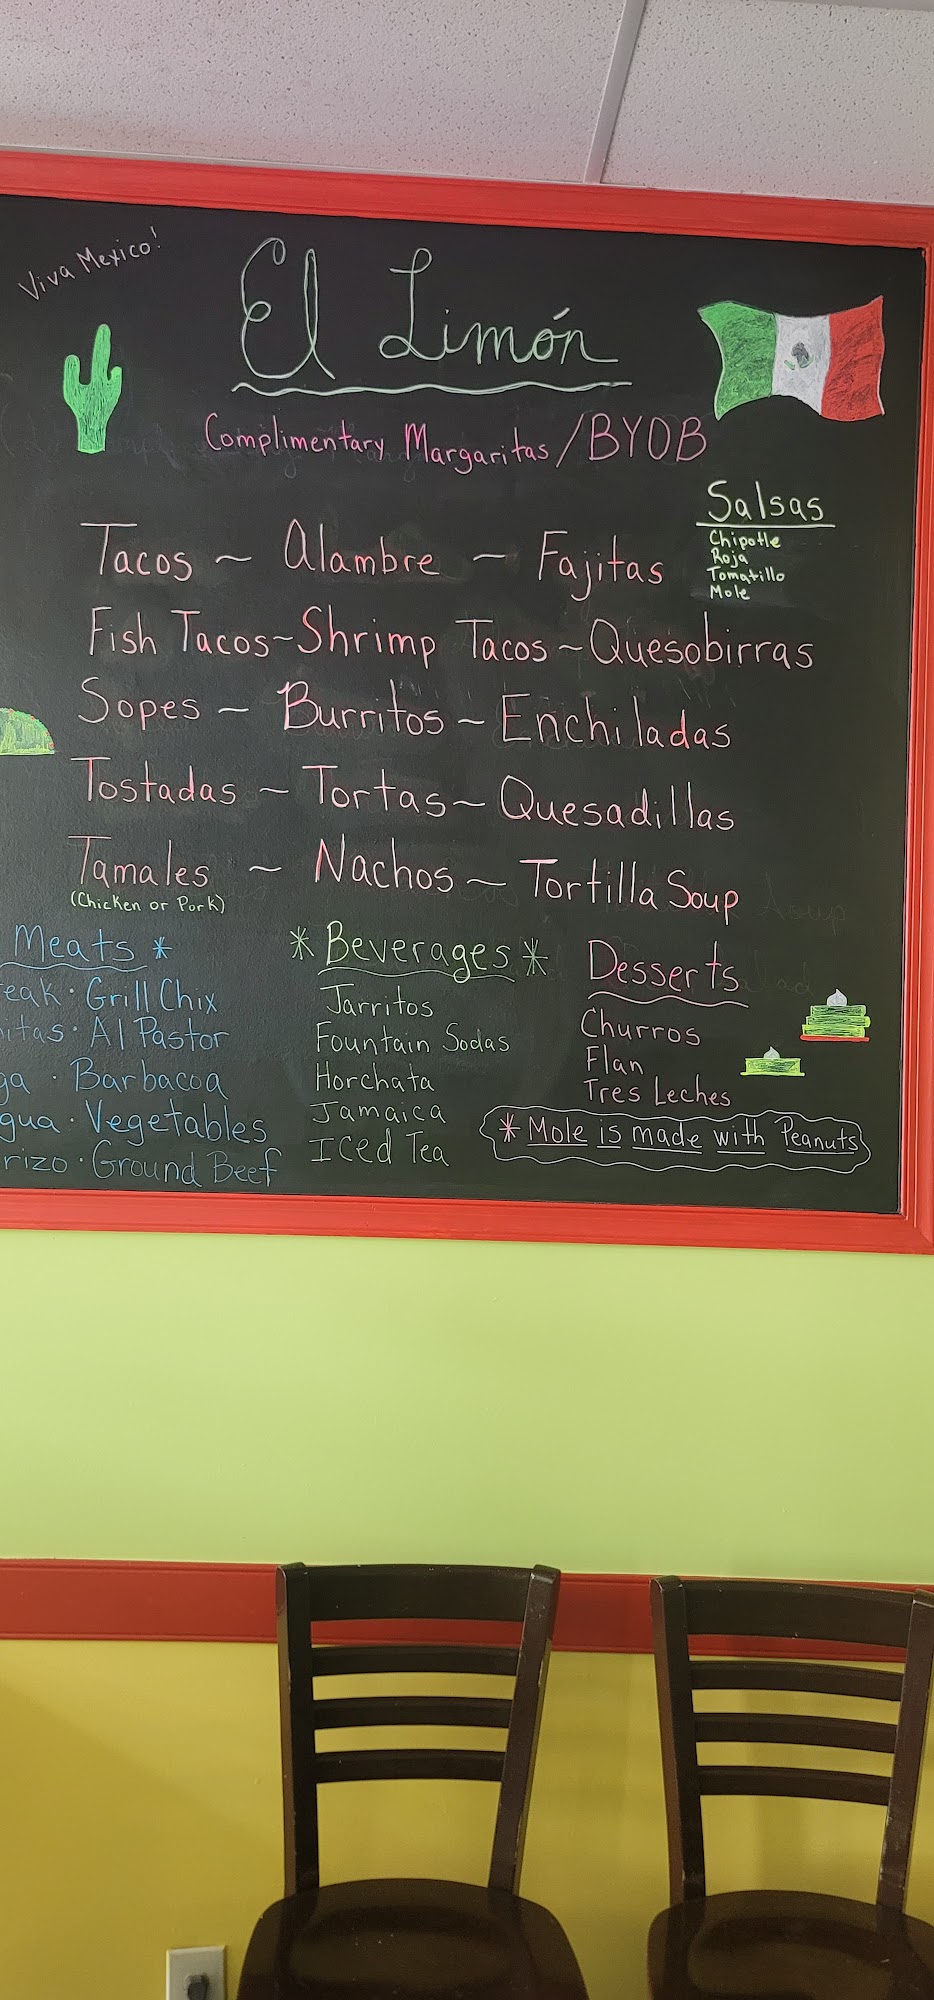 Viva Mexico!
El Limón
Complimentary Margaritas/BYOB
Salsas
Chipotle
Roja
Tomatillo
Mole
Tacos ~ Alambre ~ Fajitas
Fish Tacos~Shrimp Tacos~Quesobirras
Sopes ~ Burritos ~ Enchiladas
Tostadas ~ Tortas~ Quesadillas
Tamales ~ Nachos ~ Tortilla Soup
(Chicken or Pork)
Meats *
eak · Grill Chix
itas · Al Pastor
ga · Barbacoa
gua · Vegetables
rizo · Ground Beef
* Beverages *
Jarritos
Fountain Sodas
Horchata
Jamaica
Iced Tea
Desserts
Churros
Flan
Tres Leches
* Mole is made with Peanuts